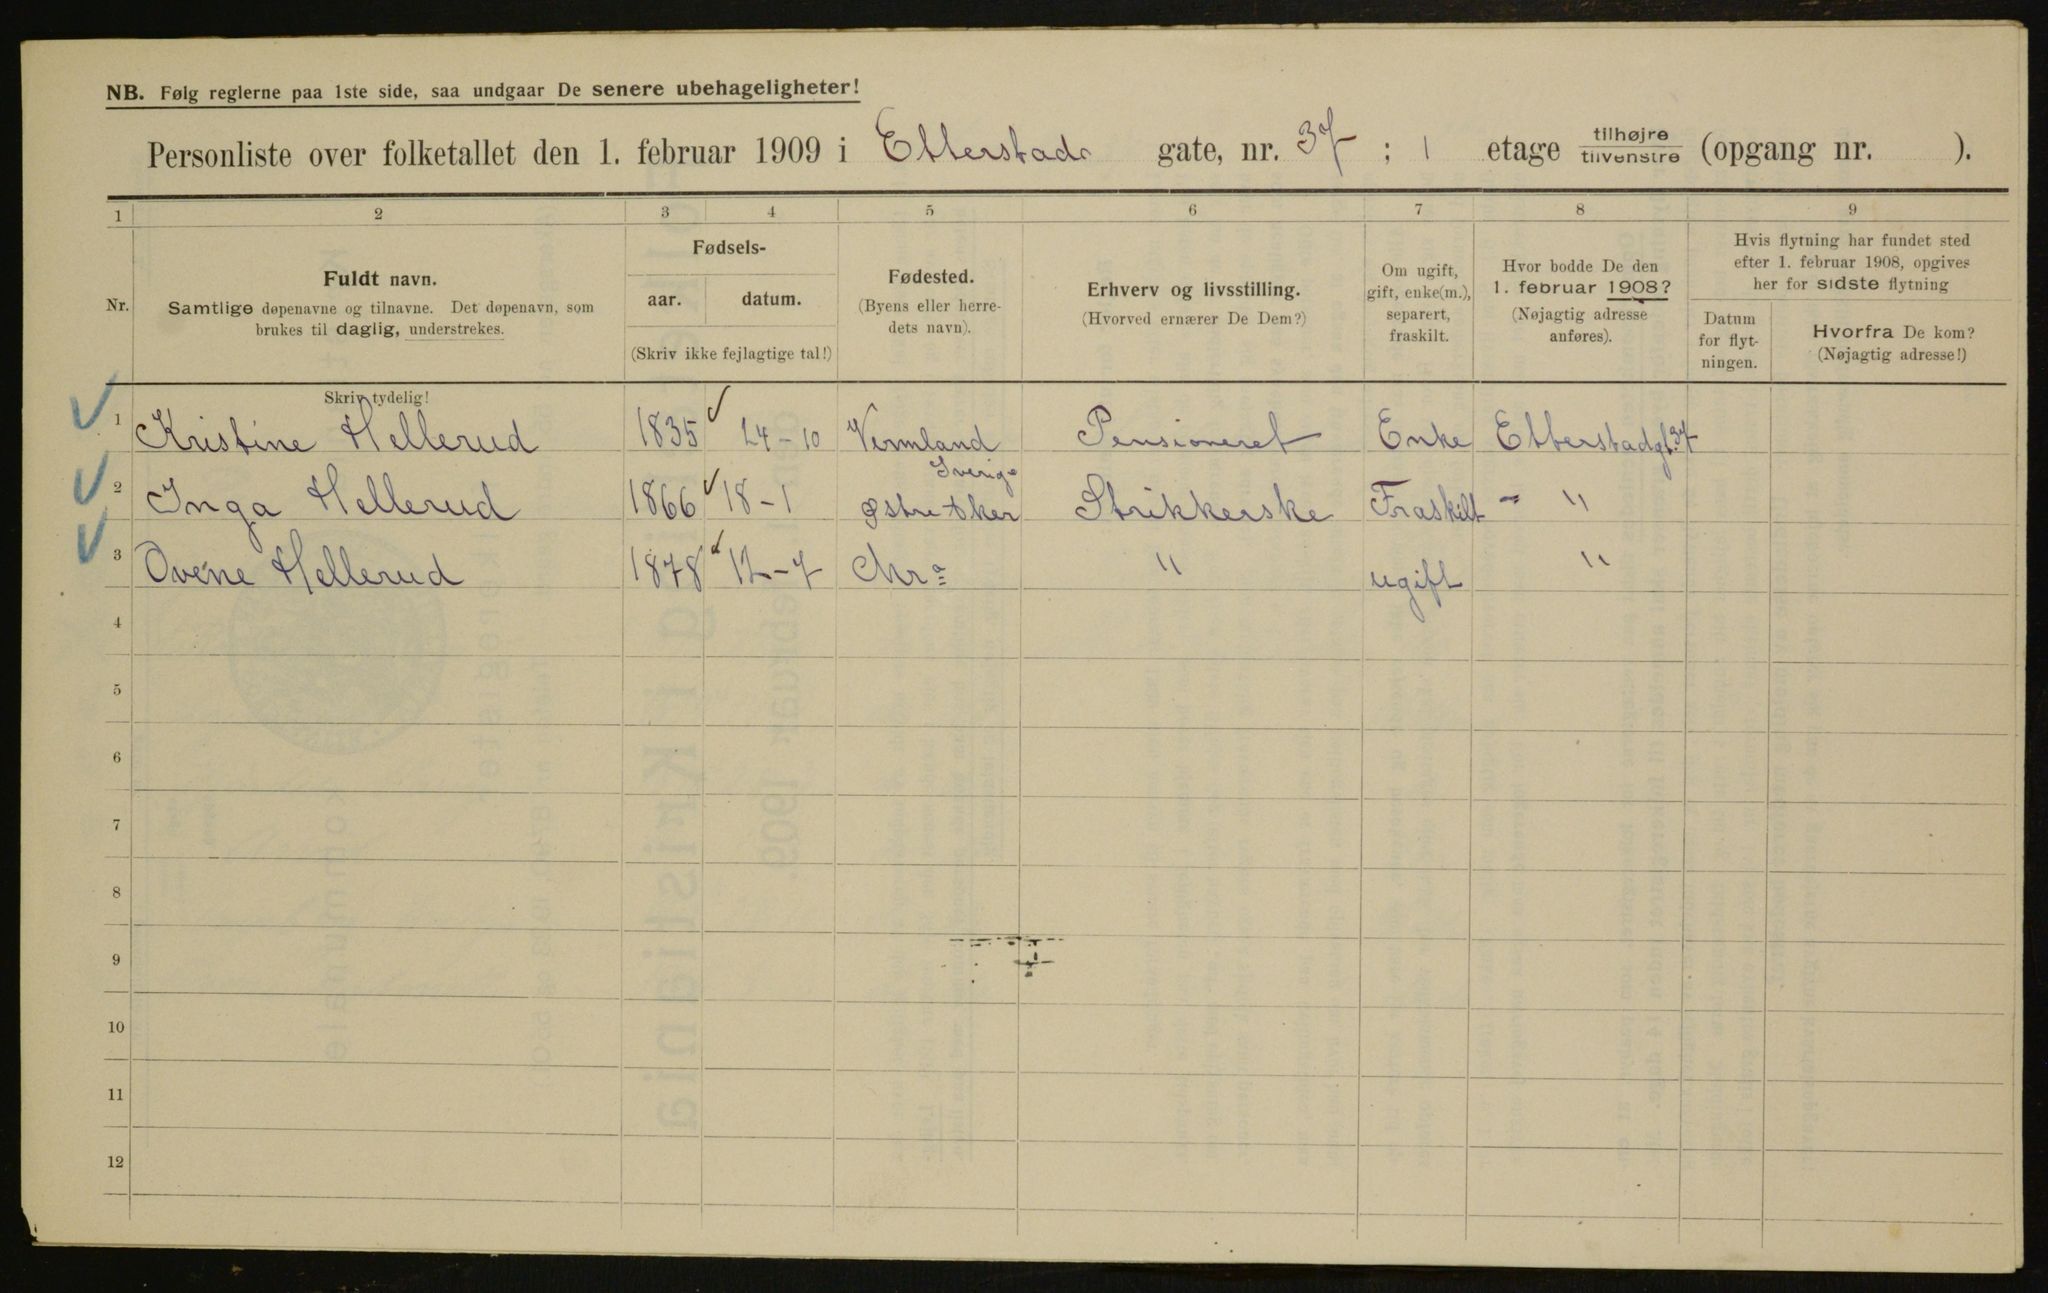 NB. Følg reglerne paa 1ste side, saa undgaar De senere ubehageligheter!
Personliste over folketallet den 1. februar 1909 i Etterstad gate, nr. 37 ; 1 etage tilhøjre/tilvenstre (opgang nr. ).
1 2 3 4 5 6 7 8 9
Nr.
Fuldt navn.
Samtlige døpenavne og tilnavne. Det døpenavn, som
brukes til daglig, understrekes.
Fødsels-
aar. datum.
(Skriv ikke fejlagtige tal!)
Fødested.
(Byens eller herre-
dets navn).
Erhverv og livsstilling.
(Hvorved ernærer De Dem?)
Om ugift,
gift, enke(m.),
separert,
fraskilt.
Hvor bodde De den
1. februar 1908?
(Nøjagtig adresse
anføres).
Hvis flytning har fundet sted
efter 1. februar 1908, opgives
her for sidste flytning
Datum
for flyt-
ningen.
Hvorfra De kom?
(Nøjagtig adresse!)
Skriv tydelig!
1 Kristine Hellerud 1835 24-10 Vermland Sverige Pensioneret Enke Etterstadgt. 37
2 Inga Hellerud 1866 18-1 Østre Aker Strikkerske Fraskilt - "
3 Ovène Hellerud 1878 12-7 Chra " ugift "
4
5
6
7
8
9
10
11
12